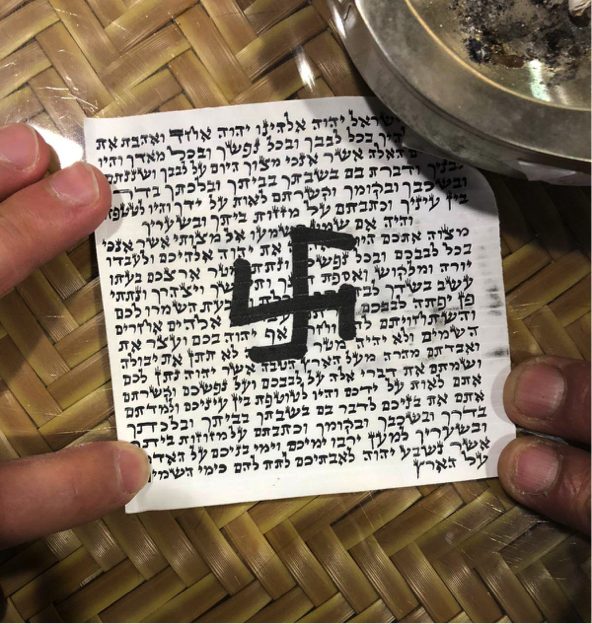 ישראל יהוה אלהינו יהוה אחד ואהבת את
בכל לבבך ובכל נפשך ובכל מאדך והיו
האלה אשר אנכי מצוך היום על לבבך ושננתם
לבניך ודברת בם בשבתך בביתך ובלכתך בדרך
ובשכבך ובקומך וקשרתם לאות על ידך והיו לטטפת
בין עיניך וכתבתם על מזזות ביתך ובשעריך
והיה אם שמע תשמעו אל מצותי אשר אנכי
מצוה אתכם היום את יהוה אלהיכם ולעבדו
בכל לבבכם ובכל נפשכם ונתתי מטר ארצכם בעתו
יורה ומלקוש ואספת ויצהרך ונתתי
עשב בשדך השמרו לכם
פן יפתה לבבכם אלהים אחרים
והשתחויתם וחרה אף יהוה בכם ועצר את
השמים ולא יהיה מטר לא תתן את יבולה
ואבדתם מהרה מעל הארץ הטבה אשר יהוה נתן לכם
ושמתם את דברי אלה על לבבכם ועל נפשכם וקשרתם
אתם לאות על ידכם והיו לטוטפת בין עיניכם ולמדתם
אתם את בניכם לדבר בם בשבתך בביתך ובלכתך
בדרך ובשכבך ובקומך וכתבתם על מזוזות ביתך
ובשעריך למען ירבו ימיכם וימי בניכם על האדמה
אשר נשבע יהוה לאבתיכם לתת להם כימי השמים
על הארץ